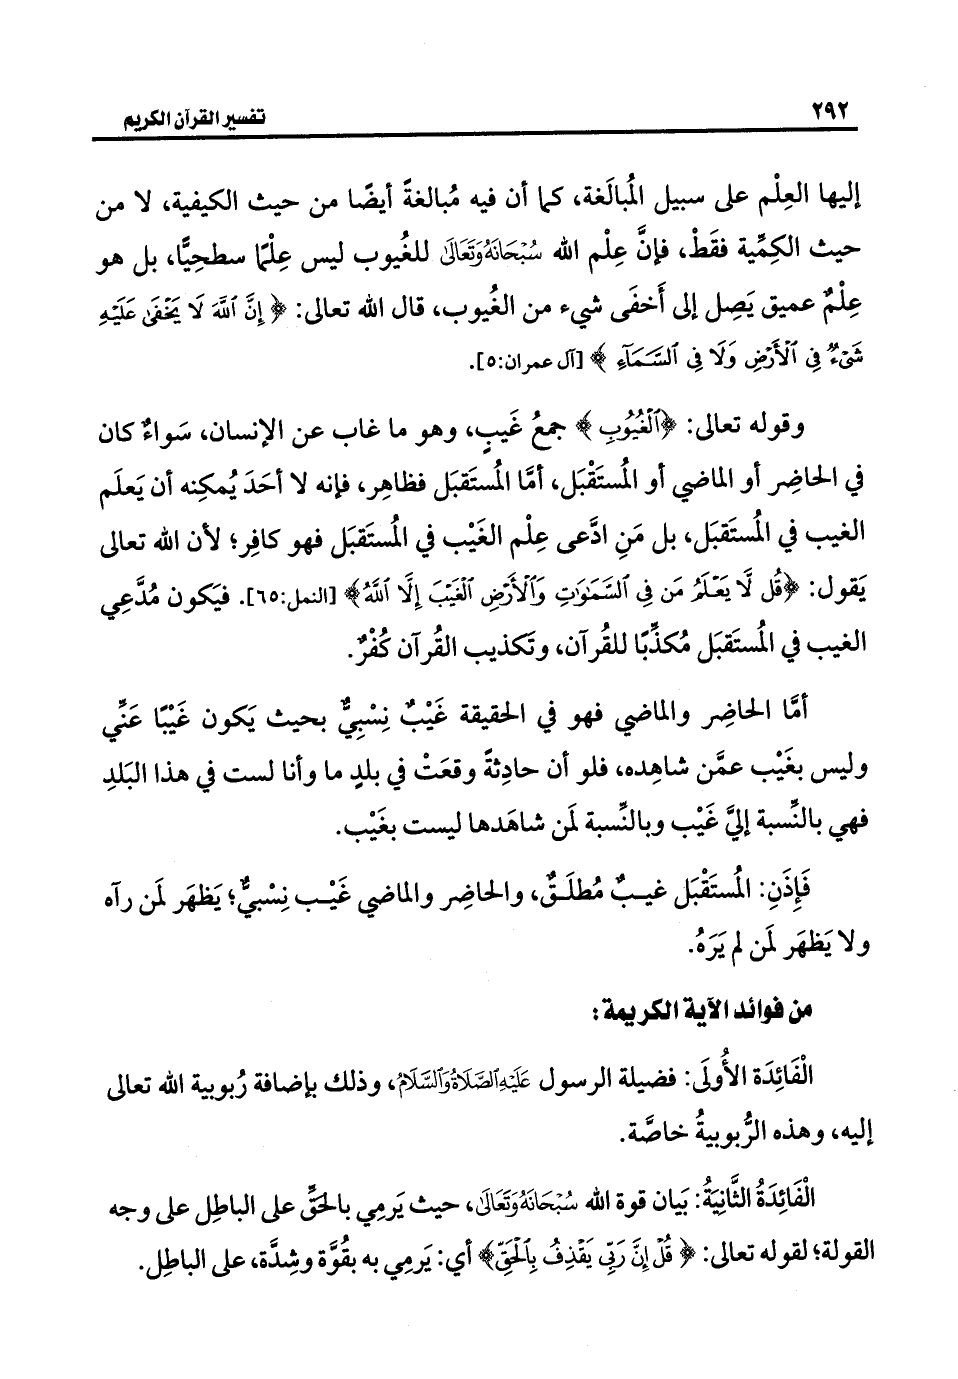 ٢٩٢
تفسير القرآن الكريم
إليها العِلْم على سبيل المُبالَغة، كما أن فيه مُبالغةً أيضًا من حيث الكيفية، لا من
حيث الكِمِّية فقَطْ، فإنَّ عِلْم الله سُبْحَانَهُ وَتَعَالَى للغُيوب ليس عِلْمًا سطحِيًّا، بل هو
عِلْمٌ عميق يَصِل إلى أَخفَى شيء من الغُيوب، قال الله تعالى: ﴿ إِنَّ ٱللَّهَ لَا يَخْفَىٰ عَلَيْهِ
شَىْءٌ فِى ٱلْأَرْضِ وَلَا فِى ٱلسَّمَآءِ ﴾ [آل عمران:٥].
وقوله تعالى: ﴿ٱلْغُيُوبِ ﴾ جمعُ غَيبٍ، وهو ما غاب عن الإنسان، سَواءٌ كان
في الحاضِر أو الماضي أو المُستَقْبَل، أمَّا المُستَقبَل فظاهِر، فإنه لا أحَدَ يُمكِنه أن يَعلَم
الغيب في المُستَقبَل، بل مَنِ ادَّعى عِلْم الغَيْب في المُستَقبَل فهو كافِر؛ لأن الله تعالى
يَقول: ﴿قُل لَّا يَعْلَمُ مَن فِى ٱلسَّمَٰوَٰتِ وَٱلْأَرْضِ ٱلْغَيْبَ إِلَّا ٱللَّهُ﴾ [النمل:٦٥]. فيَكون مُدَّعِي
الغيب في المُستَقبَل مُكذِّبًا للقُرآن، وتَكذيب القُرآن كُفْرٌ.
أمَّا الحاضِر والماضي فهو في الحقيقة غَيْبٌ نِسْبِيٌّ بحيث يَكون غَيْبًا عَنِّي
وليس بغَيْب عمَّن شاهِده، فلو أن حادِثةً وقعَتْ في بلدٍ ما وأنا لست في هذا البَلدِ
فهي بالنِّسبة إليَّ غَيْب وبالنِّسبة لمَن شاهَدها ليست بغَيْب.
فَإِذَنِ: المُستَقْبَل غيبٌ مُطلَقٌ، والحاضِر والماضي غَيْب نِسْبيٌّ؛ يَظهَر لمَن رآه
ولا يَظهَر لمَن لم يَرَهُ.
من فوائد الآية الكريمة:
الْفَائِدَة الأُولَى: فضيلة الرسول عَلَيْهِ الصَّلَاةُ وَالسَّلَامُ، وذلك بإضافة رُبوبية الله تعالى
إليه، وهذه الرُّبوبيةُ خاصَّة.
الْفَائِدَةُ الثَّانِيَةُ: بَيان قوة الله سُبْحَانَهُ وَتَعَالَى، حيث يَرمِي بالحَقِّ على الباطِل على وجه
القولة؛ لقوله تعالى: ﴿ قُلْ إِنَّ رَبِّى يَقْذِفُ بِٱلْحَقِّ﴾ أي: يَرمِي به بقُوَّة وشِدَّة، على الباطِل.